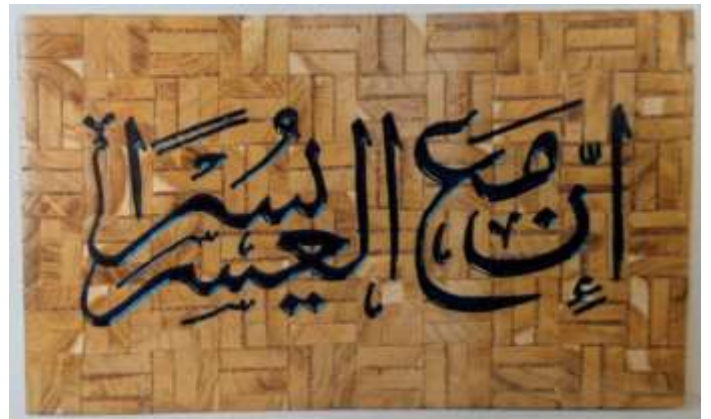 إِنَّ مَعَ العسر يُسْرًا